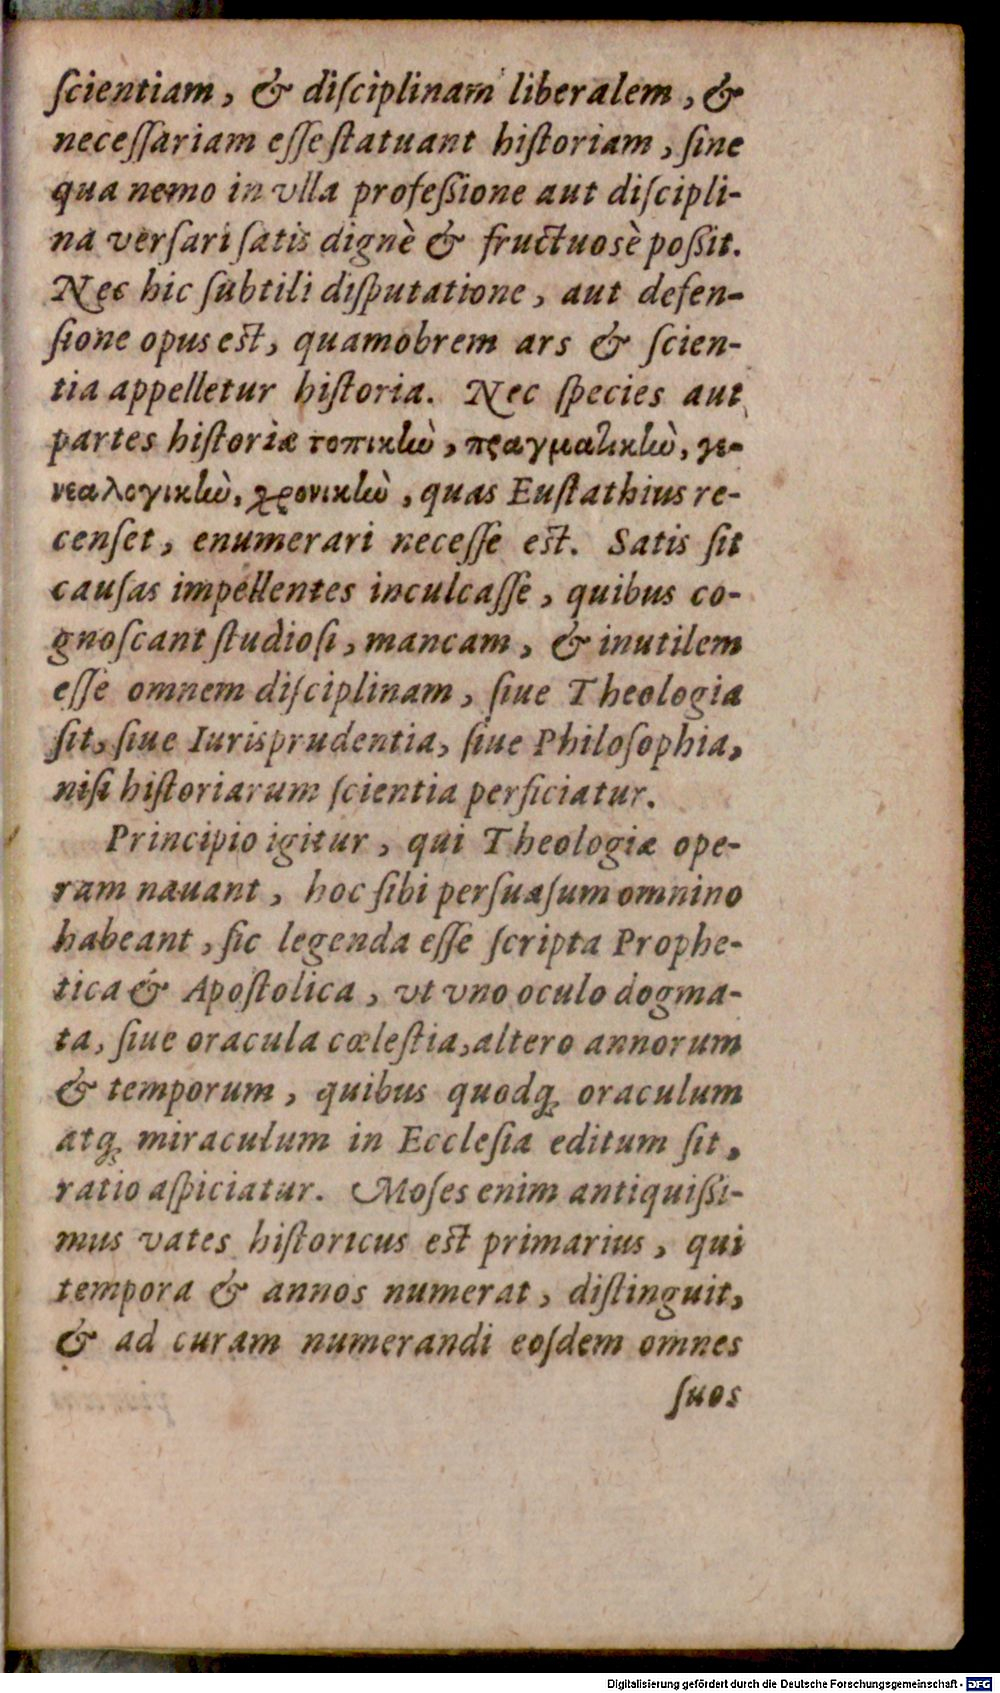 ſcientiam, & diſciplinam liberalem, &
neceſſariam eſſe ſtatuant hiſtoriam, ſine
qua nemo in vlla profeßione aut diſcipli-
na verſari ſatis dignè & fructuosè poßit.
Nec hic ſubtili diſputatione, aut defen-
ſione opus eſt, quamobrem ars & ſcien-
tia appelletur hiſtoria. Nec ſpecies aut
partes hiſtoriæ τοπικὴν, πραγματικὴν, γε-
νεαλογικὴν, χρονικὴν, quas Euſtathius re-
cenſet, enumerari neceſſe eſt. Satis ſit
cauſas impellentes inculcaſſe, quibus co-
gnoſcant ſtudioſi, mancam, & inutilem
eſſe omnem diſciplinam, ſiue Theologia
ſit, ſiue Iurisprudentia, ſiue Philoſophia,
niſi hiſtoriarum ſcientia perficiatur.
Principio igitur, qui Theologiæ ope-
ram nauant, hoc ſibi perſuaſum omnino
habeant, ſic legenda eſſe ſcripta Prophe-
tica & Apoſtolica, vt vno oculo dogma-
ta, ſiue oracula cœleſtia, altero annorum
& temporum, quibus quodq; oraculum
atq; miraculum in Eccleſia editum ſit,
ratio aſpiciatur. Moſes enim antiquißi-
mus vates hiſtoricus eſt primarius, qui
tempora & annos numerat, diſtinguit,
& ad curam numerandi eoſdem omnes
ſuos
Digitalisierung gefördert durch die Deutsche Forschungsgemeinschaft - DFG